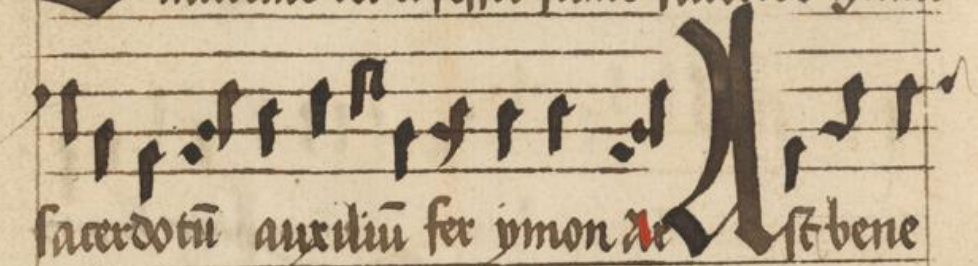 sacerdotū auxiliū fer ymon Ae Ast bene